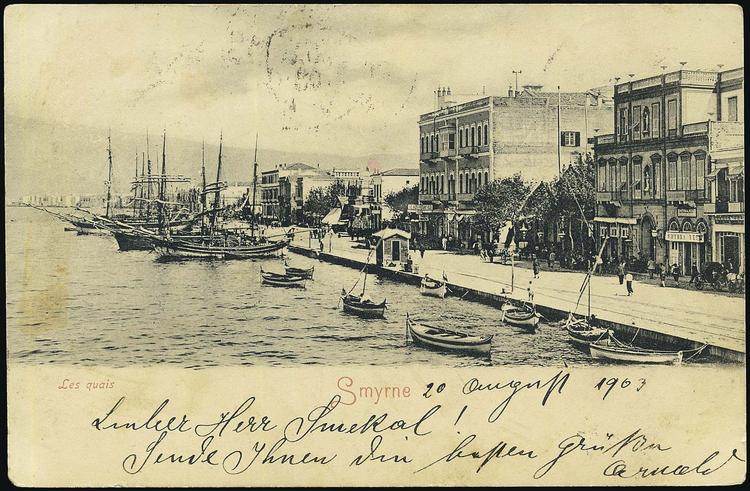 Les quais
Smyrne 20 August 1903
Lieber Herr Smekal!
Sende Ihnen die besten Grüße
Arnold